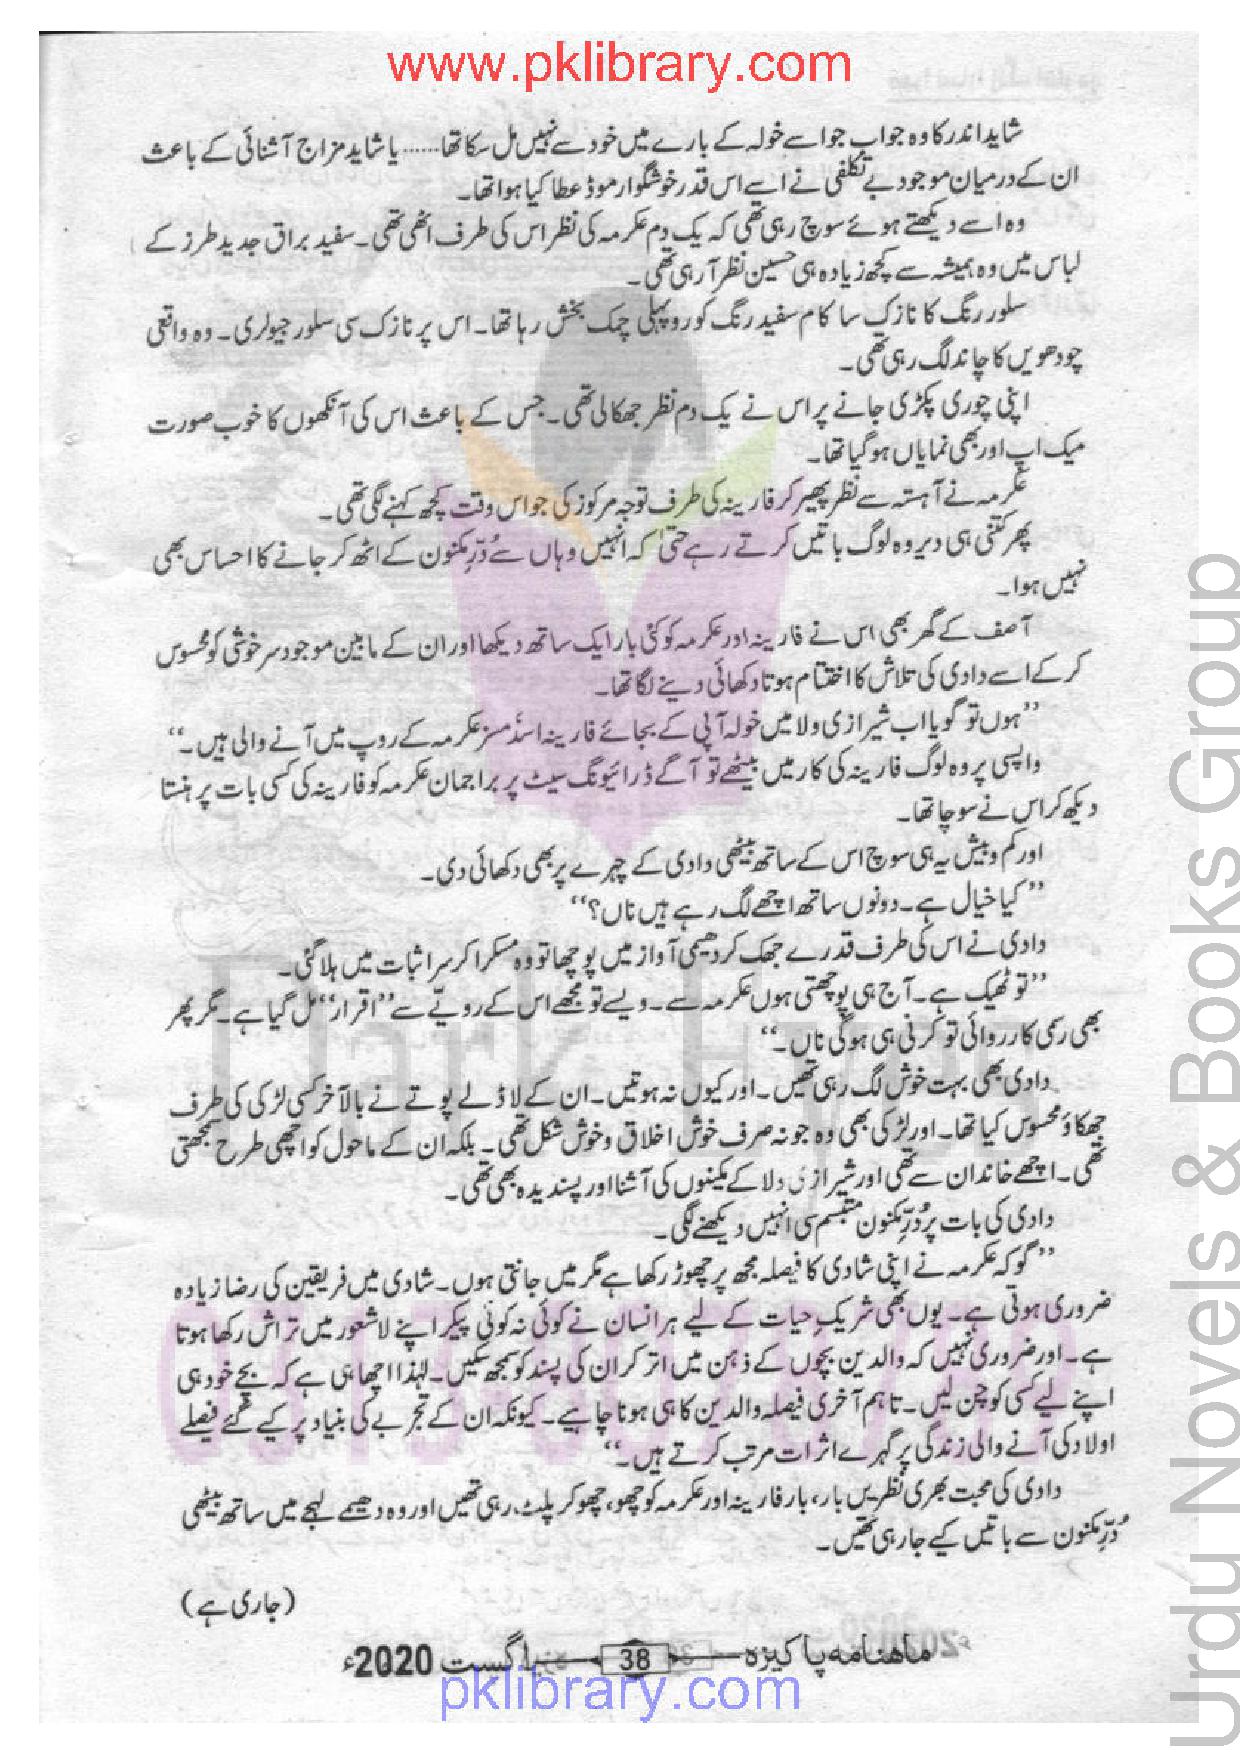 www.pklibrary.com
شاید اندر کا وہ جواب جو اسے خولہ کے بارے میں خود سے نہیں مل سکا تھا...... یا شاید مزاج آشنائی کے باعث
ان کے درمیان موجود بے تکلفی نے اسے اس قدر خوشگوار موڈ عطا کیا ہوا تھا۔
وہ اسے دیکھتے ہوئے سوچ رہی تھی کہ یک دم عکرمہ کی نظر اس کی طرف اٹھی تھی۔ سفید براق جدید طرز کے
لباس میں وہ ہمیشہ سے کچھ زیادہ ہی حسین نظر آ رہی تھی۔
سلور رنگ کا نازک سا کام سفید رنگ کو روپہلی چمک بخش رہا تھا۔ اس پر نازک سی سلور جیولری۔ وہ واقعی
چودھویں کا چاند لگ رہی تھی۔
اپنی چوری پکڑی جانے پر اس نے یک دم نظر جھکا لی تھی۔ جس کے باعث اس کی آنکھوں کا خوب صورت
میک اپ اور بھی نمایاں ہو گیا تھا۔
عکرمہ نے آہستہ سے نظر پھیر کر فارینہ کی طرف توجہ مرکوز کی جو اس وقت کچھ کہنے لگی تھی۔
پھر کتنی ہی دیر وہ لوگ باتیں کرتے رہے حتیٰ کہ انہیں وہاں سے دُرِّمکنون کے اٹھ کر جانے کا احساس بھی
نہیں ہوا۔
آصف کے گھر بھی اس نے فارینہ اور عکرمہ کو کئی بار ایک ساتھ دیکھا اور ان کے مابین موجود سرخوشی کو محسوس
کر کے اسے دادی کی تلاش کا اختتام ہوتا دکھائی دینے لگا تھا۔
”ہوں تو گویا اب شیرازی ولا میں خولہ آپی کے بجائے فارینہ اسد مسز عکرمہ کے روپ میں آنے والی ہیں۔“
واپسی پر وہ لوگ فارینہ کی کار میں بیٹھے تو آگے ڈرائیونگ سیٹ پر براجمان عکرمہ کو فارینہ کی کسی بات پر ہنستا
دیکھ کر اس نے سوچا تھا۔
اور کم و بیش یہ ہی سوچ اس کے ساتھ بیٹھی دادی کے چہرے پر بھی دکھائی دی۔
”کیا خیال ہے۔ دونوں ساتھ اچھے لگ رہے ہیں ناں؟“
دادی نے اس کی طرف قدرے جھک کر دھیمی آواز میں پوچھا تو وہ مسکرا کر سر اثبات میں ہلا گئی۔
”تو ٹھیک ہے۔ آج ہی پوچھتی ہوں عکرمہ سے۔ ویسے تو مجھے اس کے رویے سے ”اقرار“ مل گیا ہے۔ مگر پھر
بھی رسمی کارروائی تو کرنی ہی ہوگی ناں۔“
دادی بھی بہت خوش لگ رہی تھیں۔ اور کیوں نہ ہوتیں۔ ان کے لاڈلے پوتے نے بالآخر کسی لڑکی کی طرف
جھکاؤ محسوس کیا تھا۔ اور لڑکی بھی وہ جو نہ صرف خوش اخلاق و خوش شکل تھی۔ بلکہ ان کے ماحول کو اچھی طرح سمجھتی
تھی۔ اچھے خاندان سے تھی اور شیرازی ولا کے مکینوں کی آشنا اور پسندیدہ بھی تھی۔
دادی کی بات پر دُرِّمکنون متبسم سی انہیں دیکھنے لگی۔
”گو کہ عکرمہ نے اپنی شادی کا فیصلہ مجھ پر چھوڑ رکھا ہے مگر میں جانتی ہوں۔ شادی میں فریقین کی رضا زیادہ
ضروری ہوتی ہے۔ یوں بھی شریکِ حیات کے لیے ہر انسان نے کوئی نہ کوئی پیکر اپنے لاشعور میں تراش رکھا ہوتا
ہے۔ اور ضروری نہیں کہ والدین بچوں کے ذہن میں اتر کر ان کی پسند کو سمجھ سکیں۔ لہٰذا اچھا ہی ہے کہ بچے خود ہی
اپنے لیے کسی کو چن لیں۔ تاہم آخری فیصلہ والدین کا ہی ہونا چاہیے۔ کیونکہ ان کے تجربے کی بنیاد پر کیے گئے فیصلے
اولاد کی آنے والی زندگی پر گہرے اثرات مرتب کرتے ہیں۔“
دادی کی محبت بھری نظریں بار، بار فارینہ اور عکرمہ کو چھو، چھو کر پلٹ رہی تھیں اور وہ دھیمے لہجے میں ساتھ بیٹھی
دُرِّمکنون سے باتیں کیے جا رہی تھیں۔
(جاری ہے)
ماهنامہ پاکیزہ 38 اگست 2020ء
pklibrary.com
Urdu Novels & Books Group